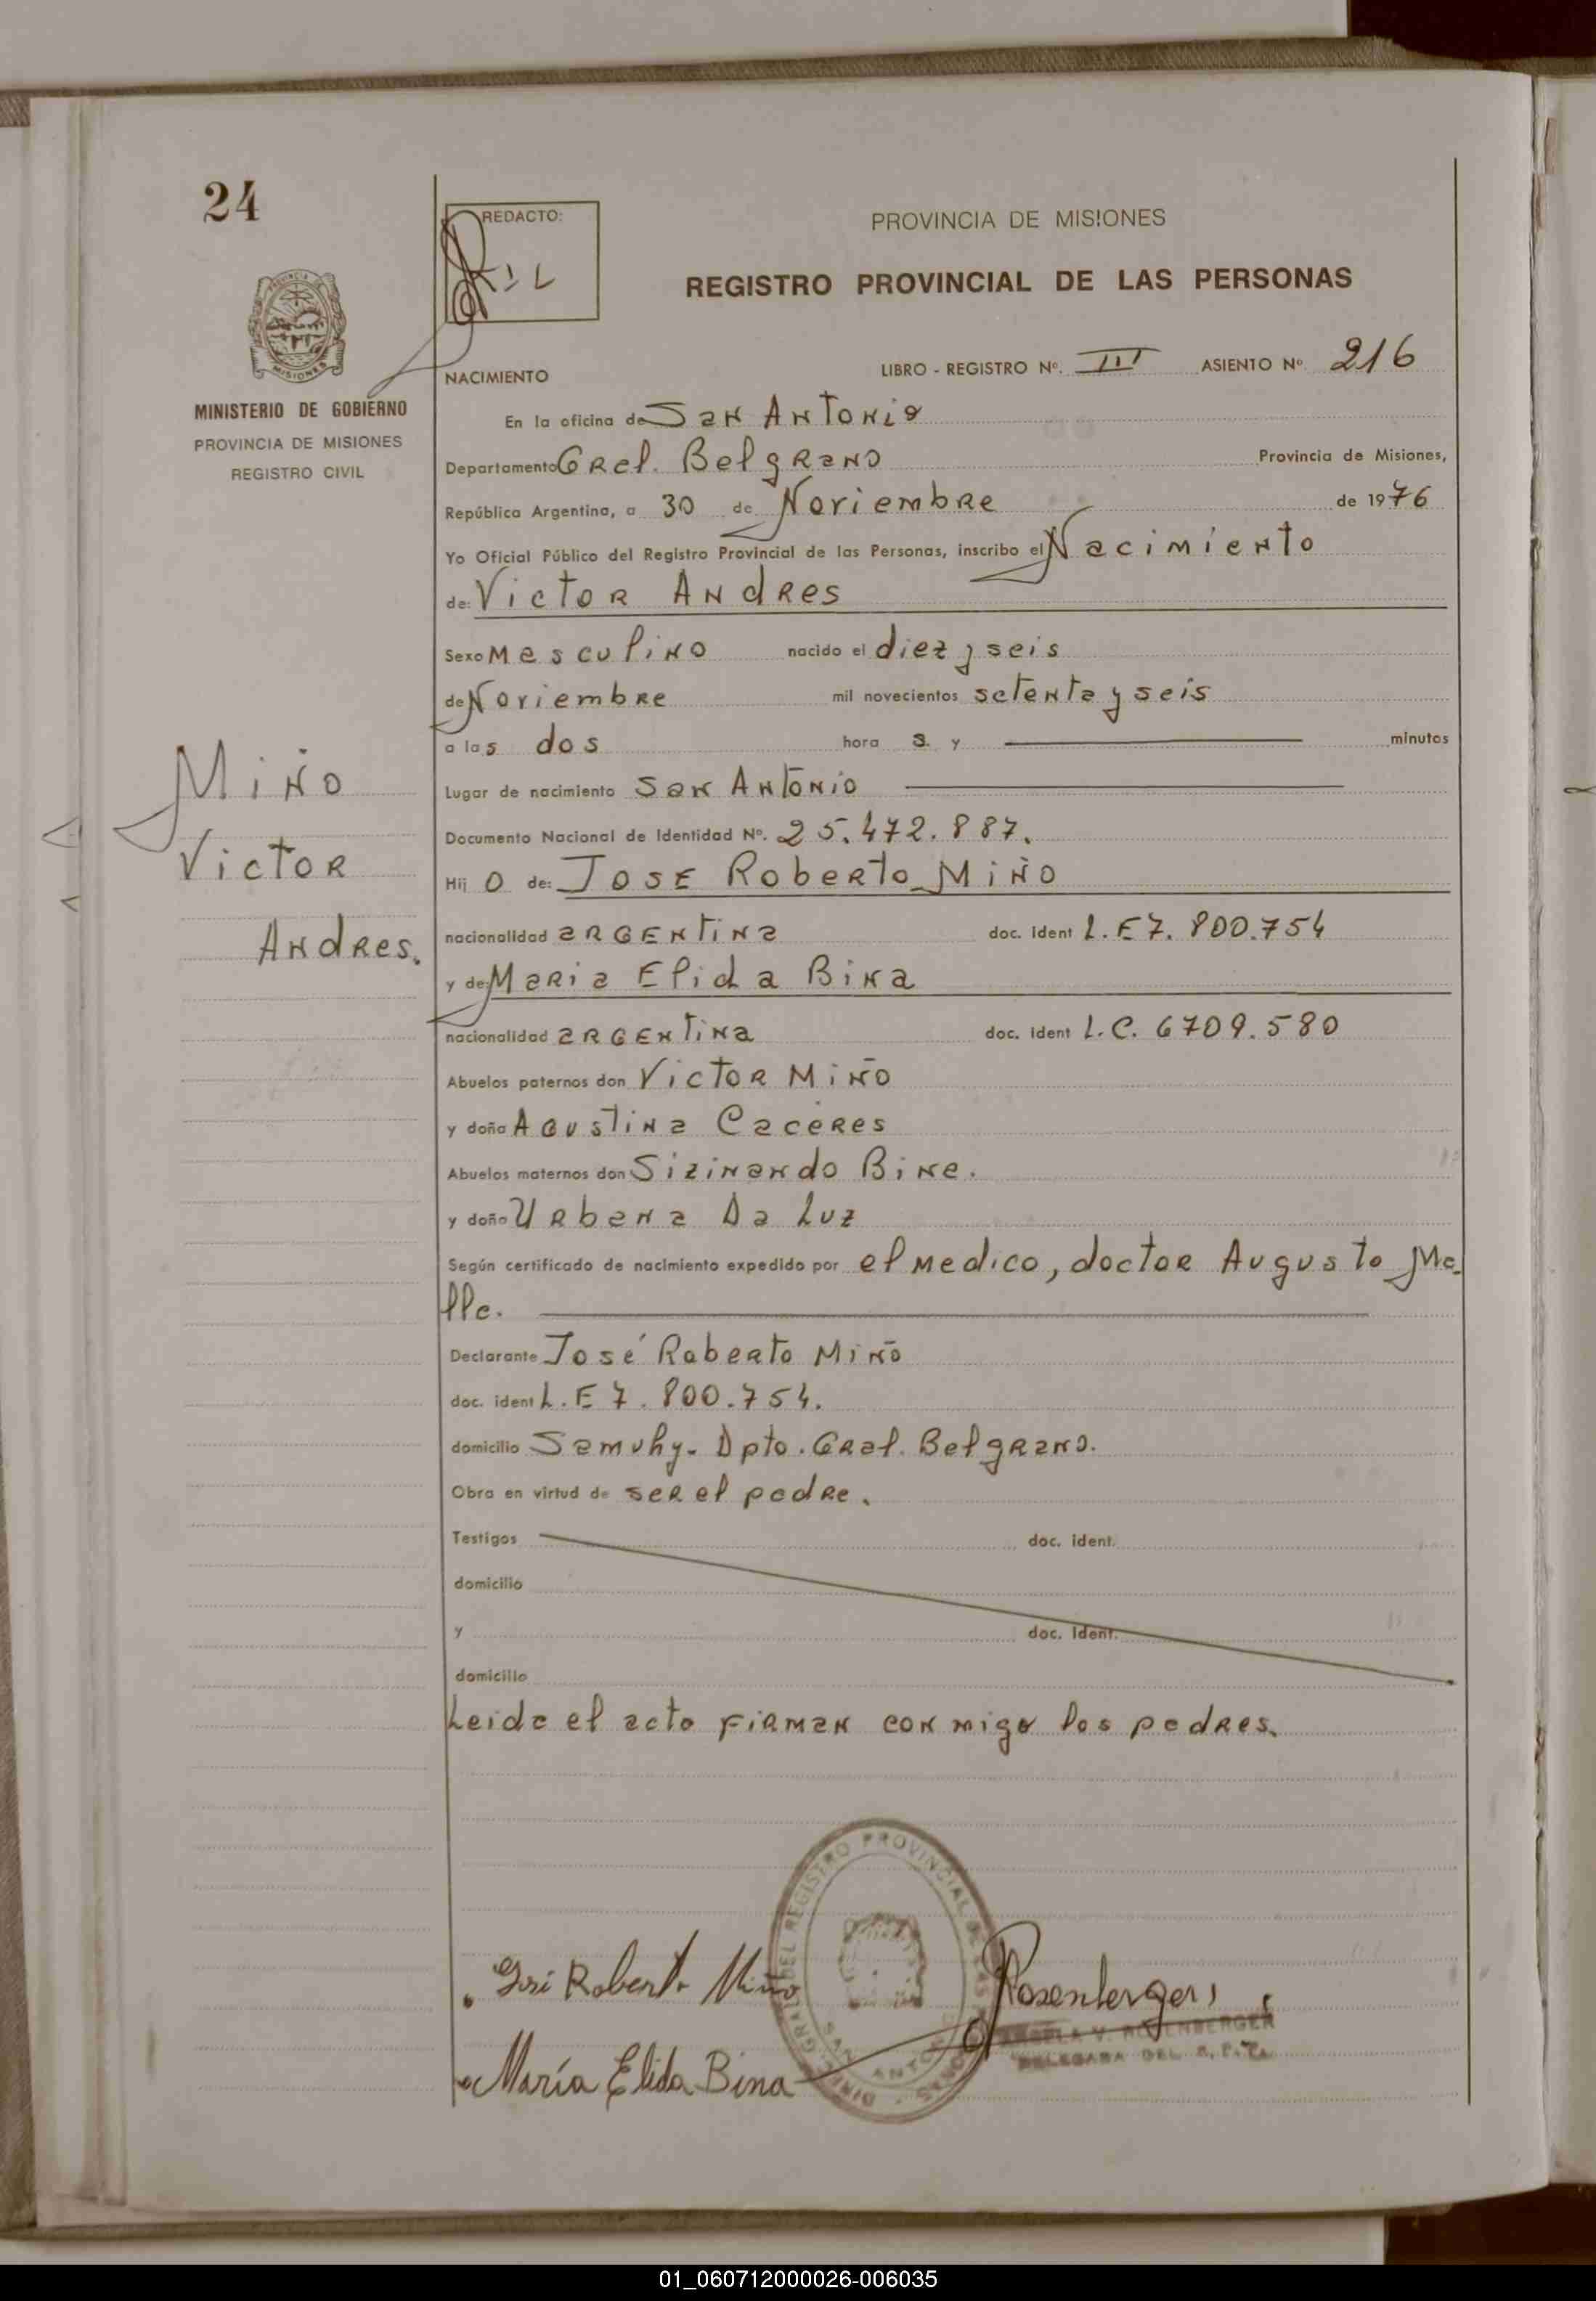 24
REDACTO:
PROVINCIA DE MISIONES
REGISTRO PROVINCIAL DE LAS PERSONAS
MISIONES
MINISTERIO DE GOBIERNO
PROVINCIA DE MISIONES
REGISTRO CIVIL
NACIMIENTO LIBRO - REGISTRO Nº. III ASIENTO Nº 216
En la oficina de San Antonio
Departamento Gral. Belgrano Provincia de Misiones,
República Argentina, a 30 de Noviembre de 1976
Yo Oficial Público del Registro Provincial de las Personas, inscribo el Nacimiento
de: Victor Andres
Sexo Masculino nacido el diez y seis
de Noviembre mil novecientos setenta y seis
a las dos hora s. y minutos
Miño
Victor
Andres.
Lugar de nacimiento San Antonio
Documento Nacional de Identidad Nº. 25.472.887.
Hij o de: Jose Roberto Miño
nacionalidad argentina doc. ident L.E 7.800.754
y de: Maria Elida Bina
nacionalidad argentina doc. ident L.C. 6709.580
Abuelos paternos don Victor Miño
y doña Agustina Caceres
Abuelos maternos don Sizinando Bina.
y doña Urbana Da Luz
Según certificado de nacimiento expedido por el medico, doctor Augusto Me-
lle.
Declarante José Roberto Miño
doc. ident L.E 7.800.754.
domicilio Samuhy. Dpto. Gral. Belgrano.
Obra en virtud de ser el padre.
Testigos doc. ident.
domicilio
y doc. ident.
domicilio
Leida el acto firman conmigo los padres.
REGISTRO PROVINCIAL DE LAS PERSONAS
SAN ANTONIO
José Roberto Miño
Rosenberger
V. ROSENBERGER
DELEGADA DEL R. P. P.
María Elida Bina
01_060712000026-006035